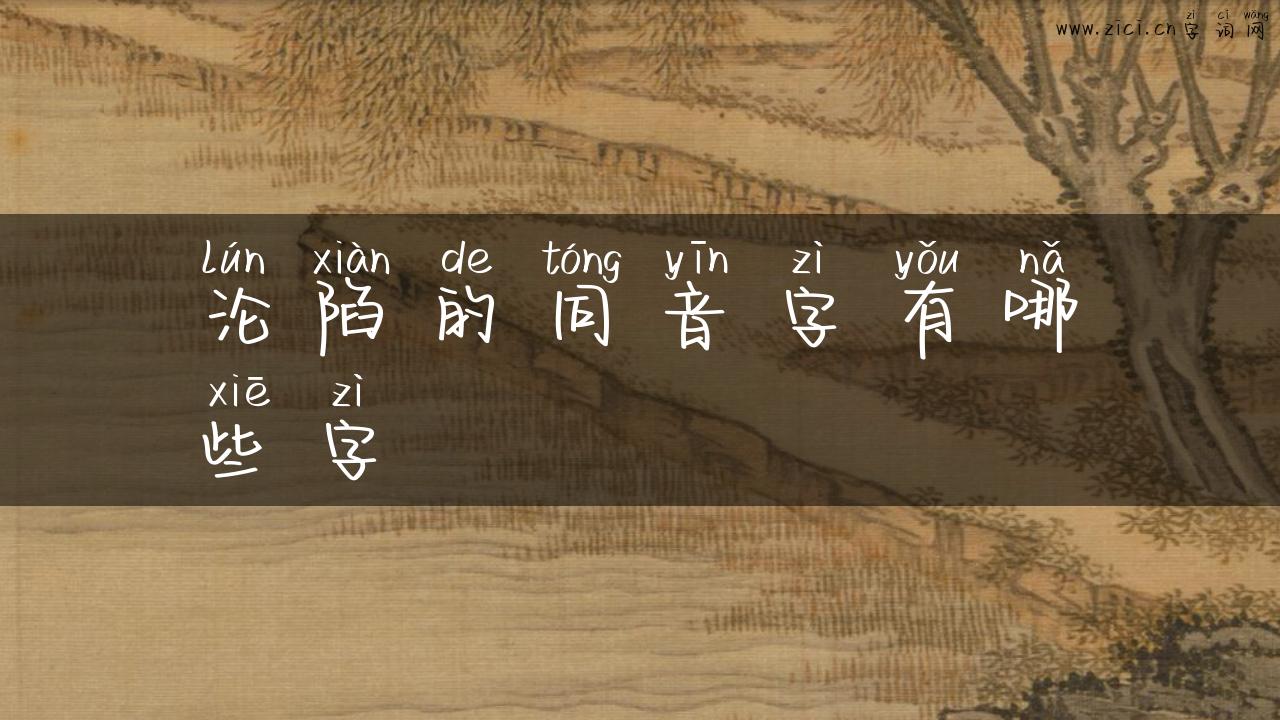 zì cí wǎng
www.zici.cn字词网
lún xiàn de tóng yīn zì yǒu nǎ
沦陷的同音字有哪
xiē zì
些字